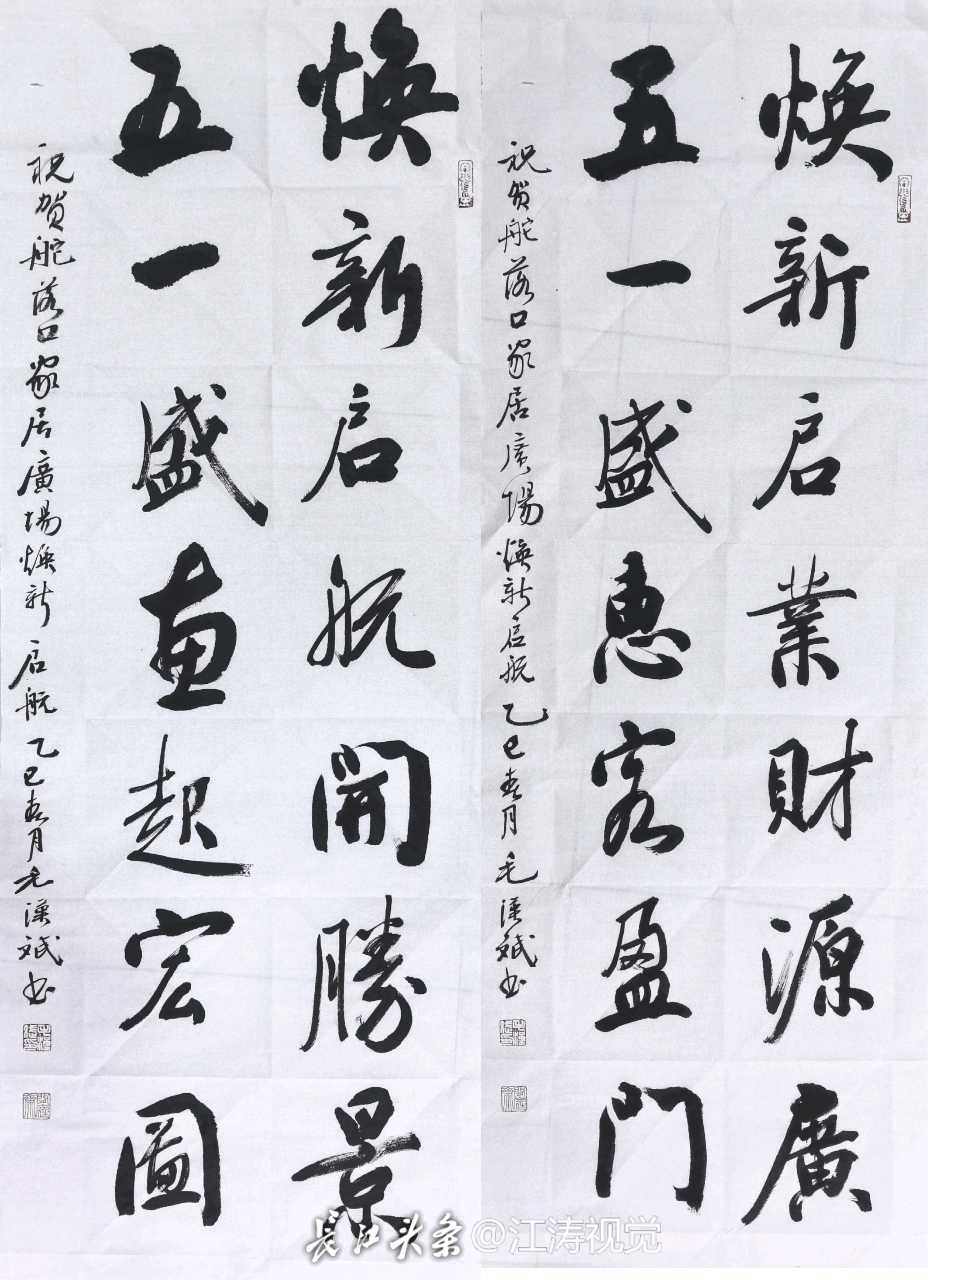 焕新启業財源廣
五一盛惠客盈門
祝贺舵落口家居廣場焕新启航 乙巳春月 毛漢斌书
焕新启航開勝景
五一盛畫起宏圖
祝贺舵落口家居廣場焕新启航 乙巳春月 毛漢斌书
长江头条 @江涛视觉